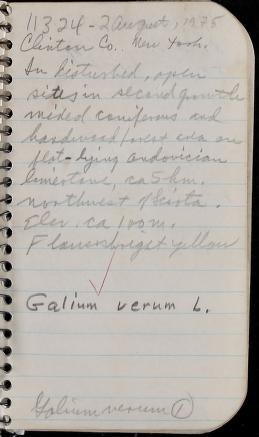 11324 - 2 August, 1975
Clinton Co. New York.
In disturbed, open
sites in second growth
mixed coniferous and
hardwood forest area on
flat-lying ordovician
limestone, ca 5 km.
northwest of Sciota.
Elev. ca 100m.
Flowers bright yellow
Galium verum L.
Galium verum 1